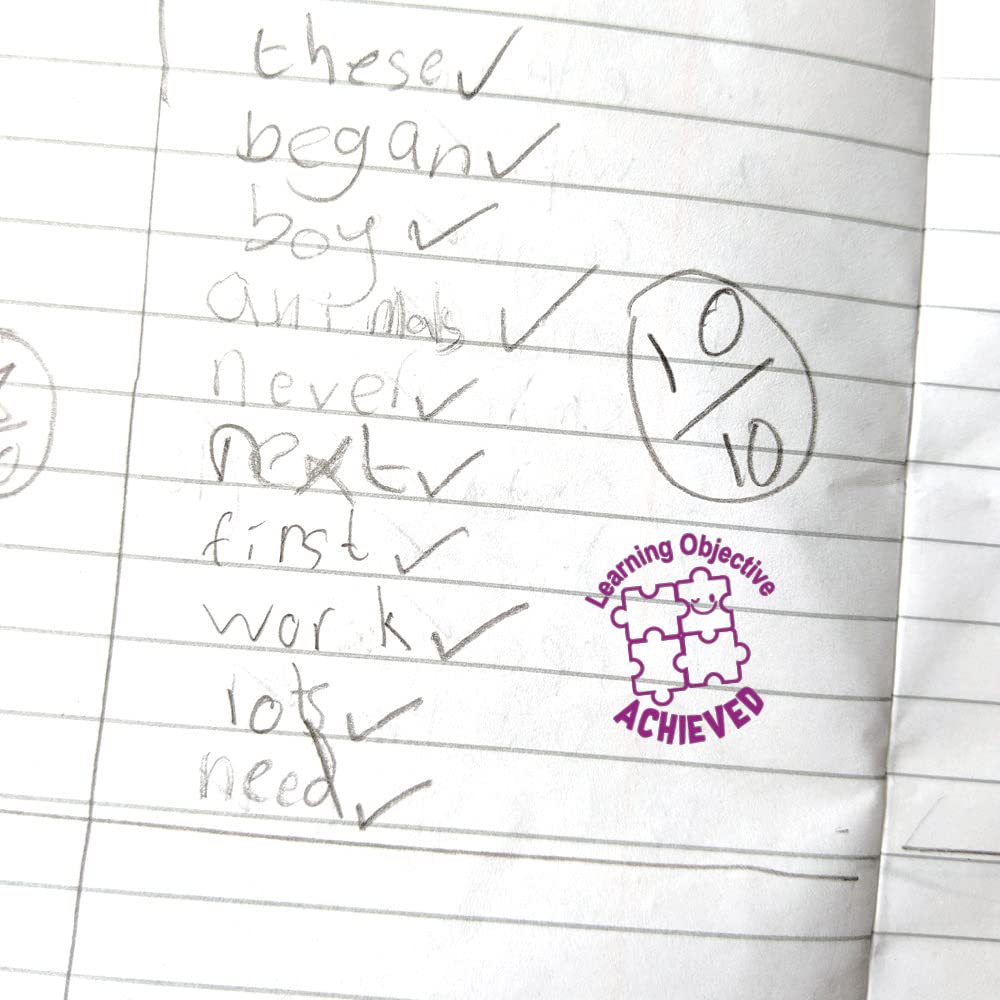 these ✓
began ✓
boy ✓
animals ✓
never ✓
next ✓
first ✓
work ✓
lots ✓
need ✓
10/10
Learning Objective
ACHIEVED